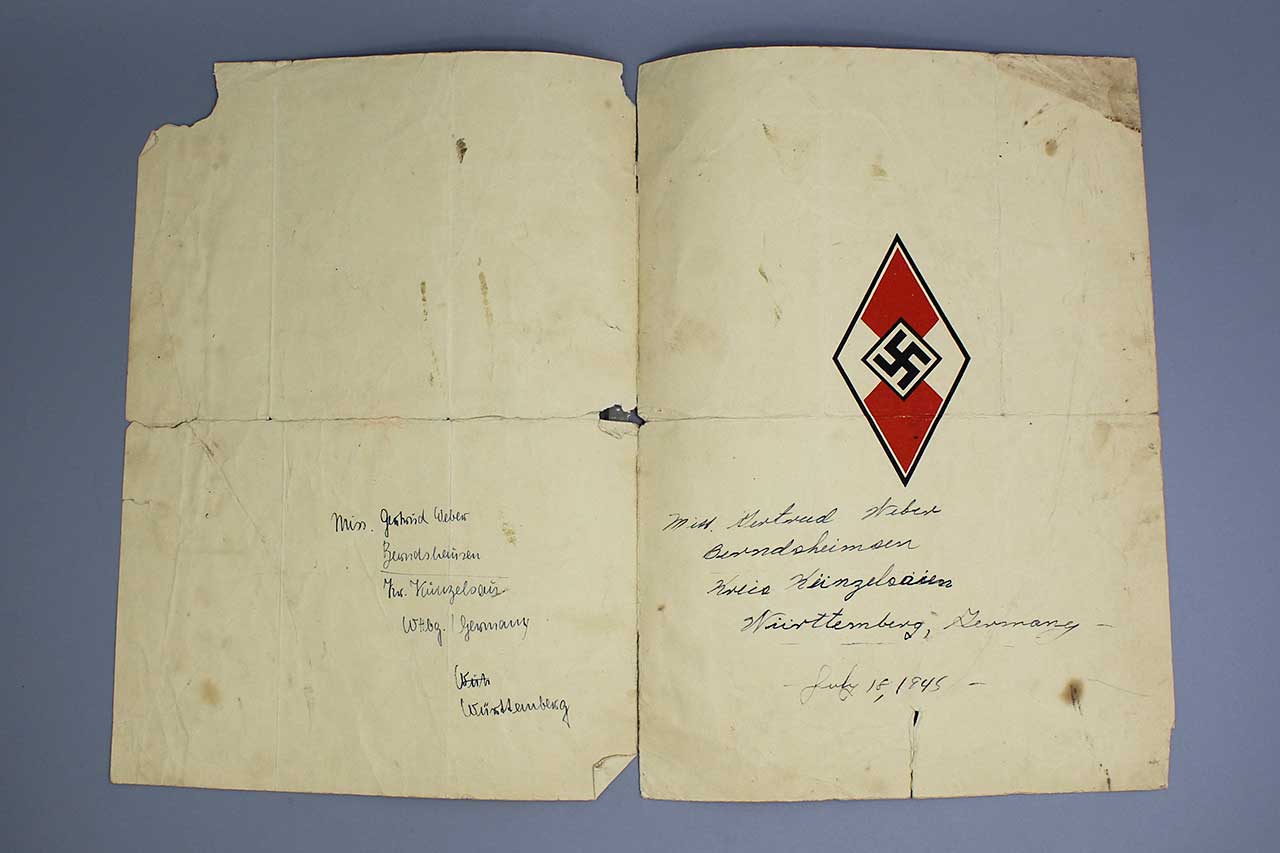 Miss. Gertrud Weber
Berndshausen
Kr. Künzelsau
Wttbg. / Germany
Württemberg
Miss. Gertrud Weber
Berndsheimsen
Kreis Künzelsaien
Württemberg, Germany —
— July 18, 1945 —